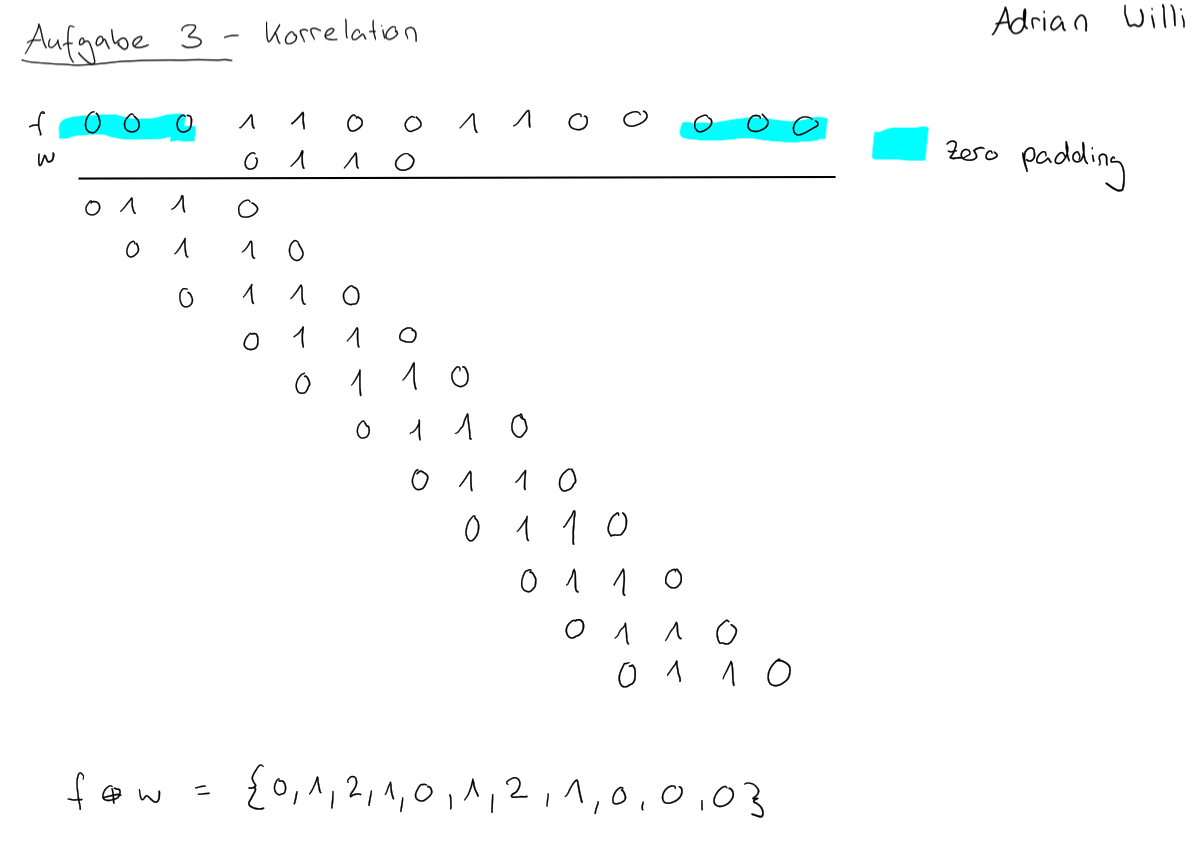 Adrian Willi
Aufgabe 3 - Korrelation
f 0 0 0 1 1 0 0 1 1 0 0 0 0 0
w 0 1 1 0
Zero padding
0 1 1 0
0 1 1 0
0 1 1 0
0 1 1 0
0 1 1 0
0 1 1 0
0 1 1 0
0 1 1 0
0 1 1 0
0 1 1 0
0 1 1 0
f ⊕ w = {0,1,2,1,0,1,2,1,0,0,0}